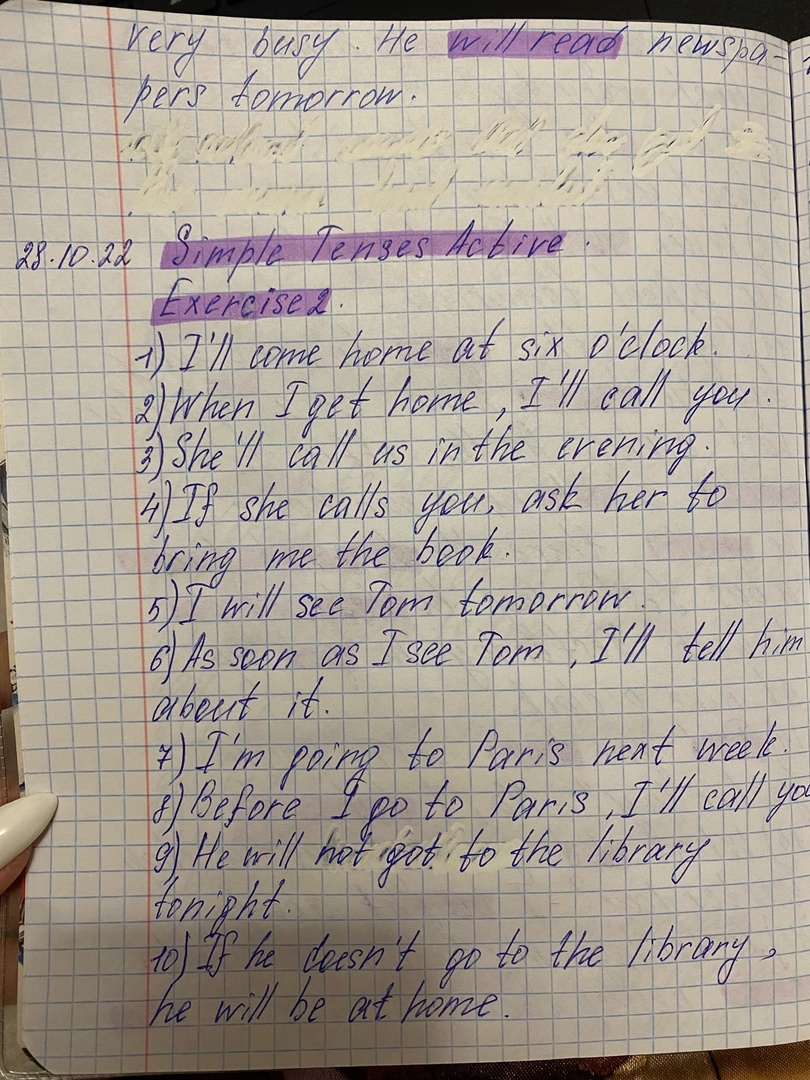 very busy. He will read newspa-
pers tomorrow.
28.10.22 Simple Tenses Active.
Exercise 2.
1) I'll come home at six o'clock.
2) When I get home, I'll call you.
3) She'll call us in the evening.
4) If she calls you, ask her to
bring me the book.
5) I will see Tom tomorrow.
6) As soon as I see Tom, I'll tell him
about it.
7) I'm going to Paris next week.
8) Before I go to Paris, I'll call you
9) He will not got to the library
tonight.
10) If he doesn't go to the library,
he will be at home.